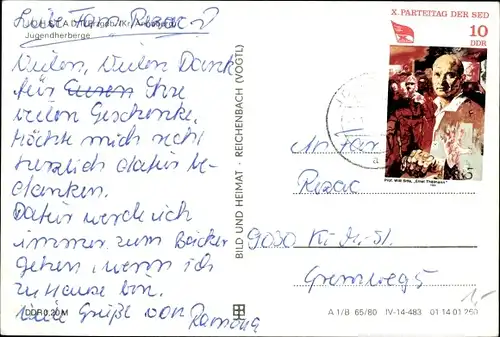 Liebe Fam. Rezac!
Jugendherberge
Vielen, Vielen Dank
für Eueren Ihre
vielen Geschenke.
Möchte mich recht
herzlich dafür be-
danken.
Dafür werde ich
immer zum Bäcker
gehen, wenn ich
zu Hause bin.
Viele Grüße von Ramona
DDR 0,20 M
BILD UND HEIMAT · REICHENBACH (VOGTL)
X. PARTEITAG DER SED
10
DDR
Prof. Willi Sitte, „Ernst Thälmann"
An Fam
Rezac
9030 K.-M.-St.
Grenzweg 5
1,-
A 1/8 65/80 IV-14-483 01 14 01 260